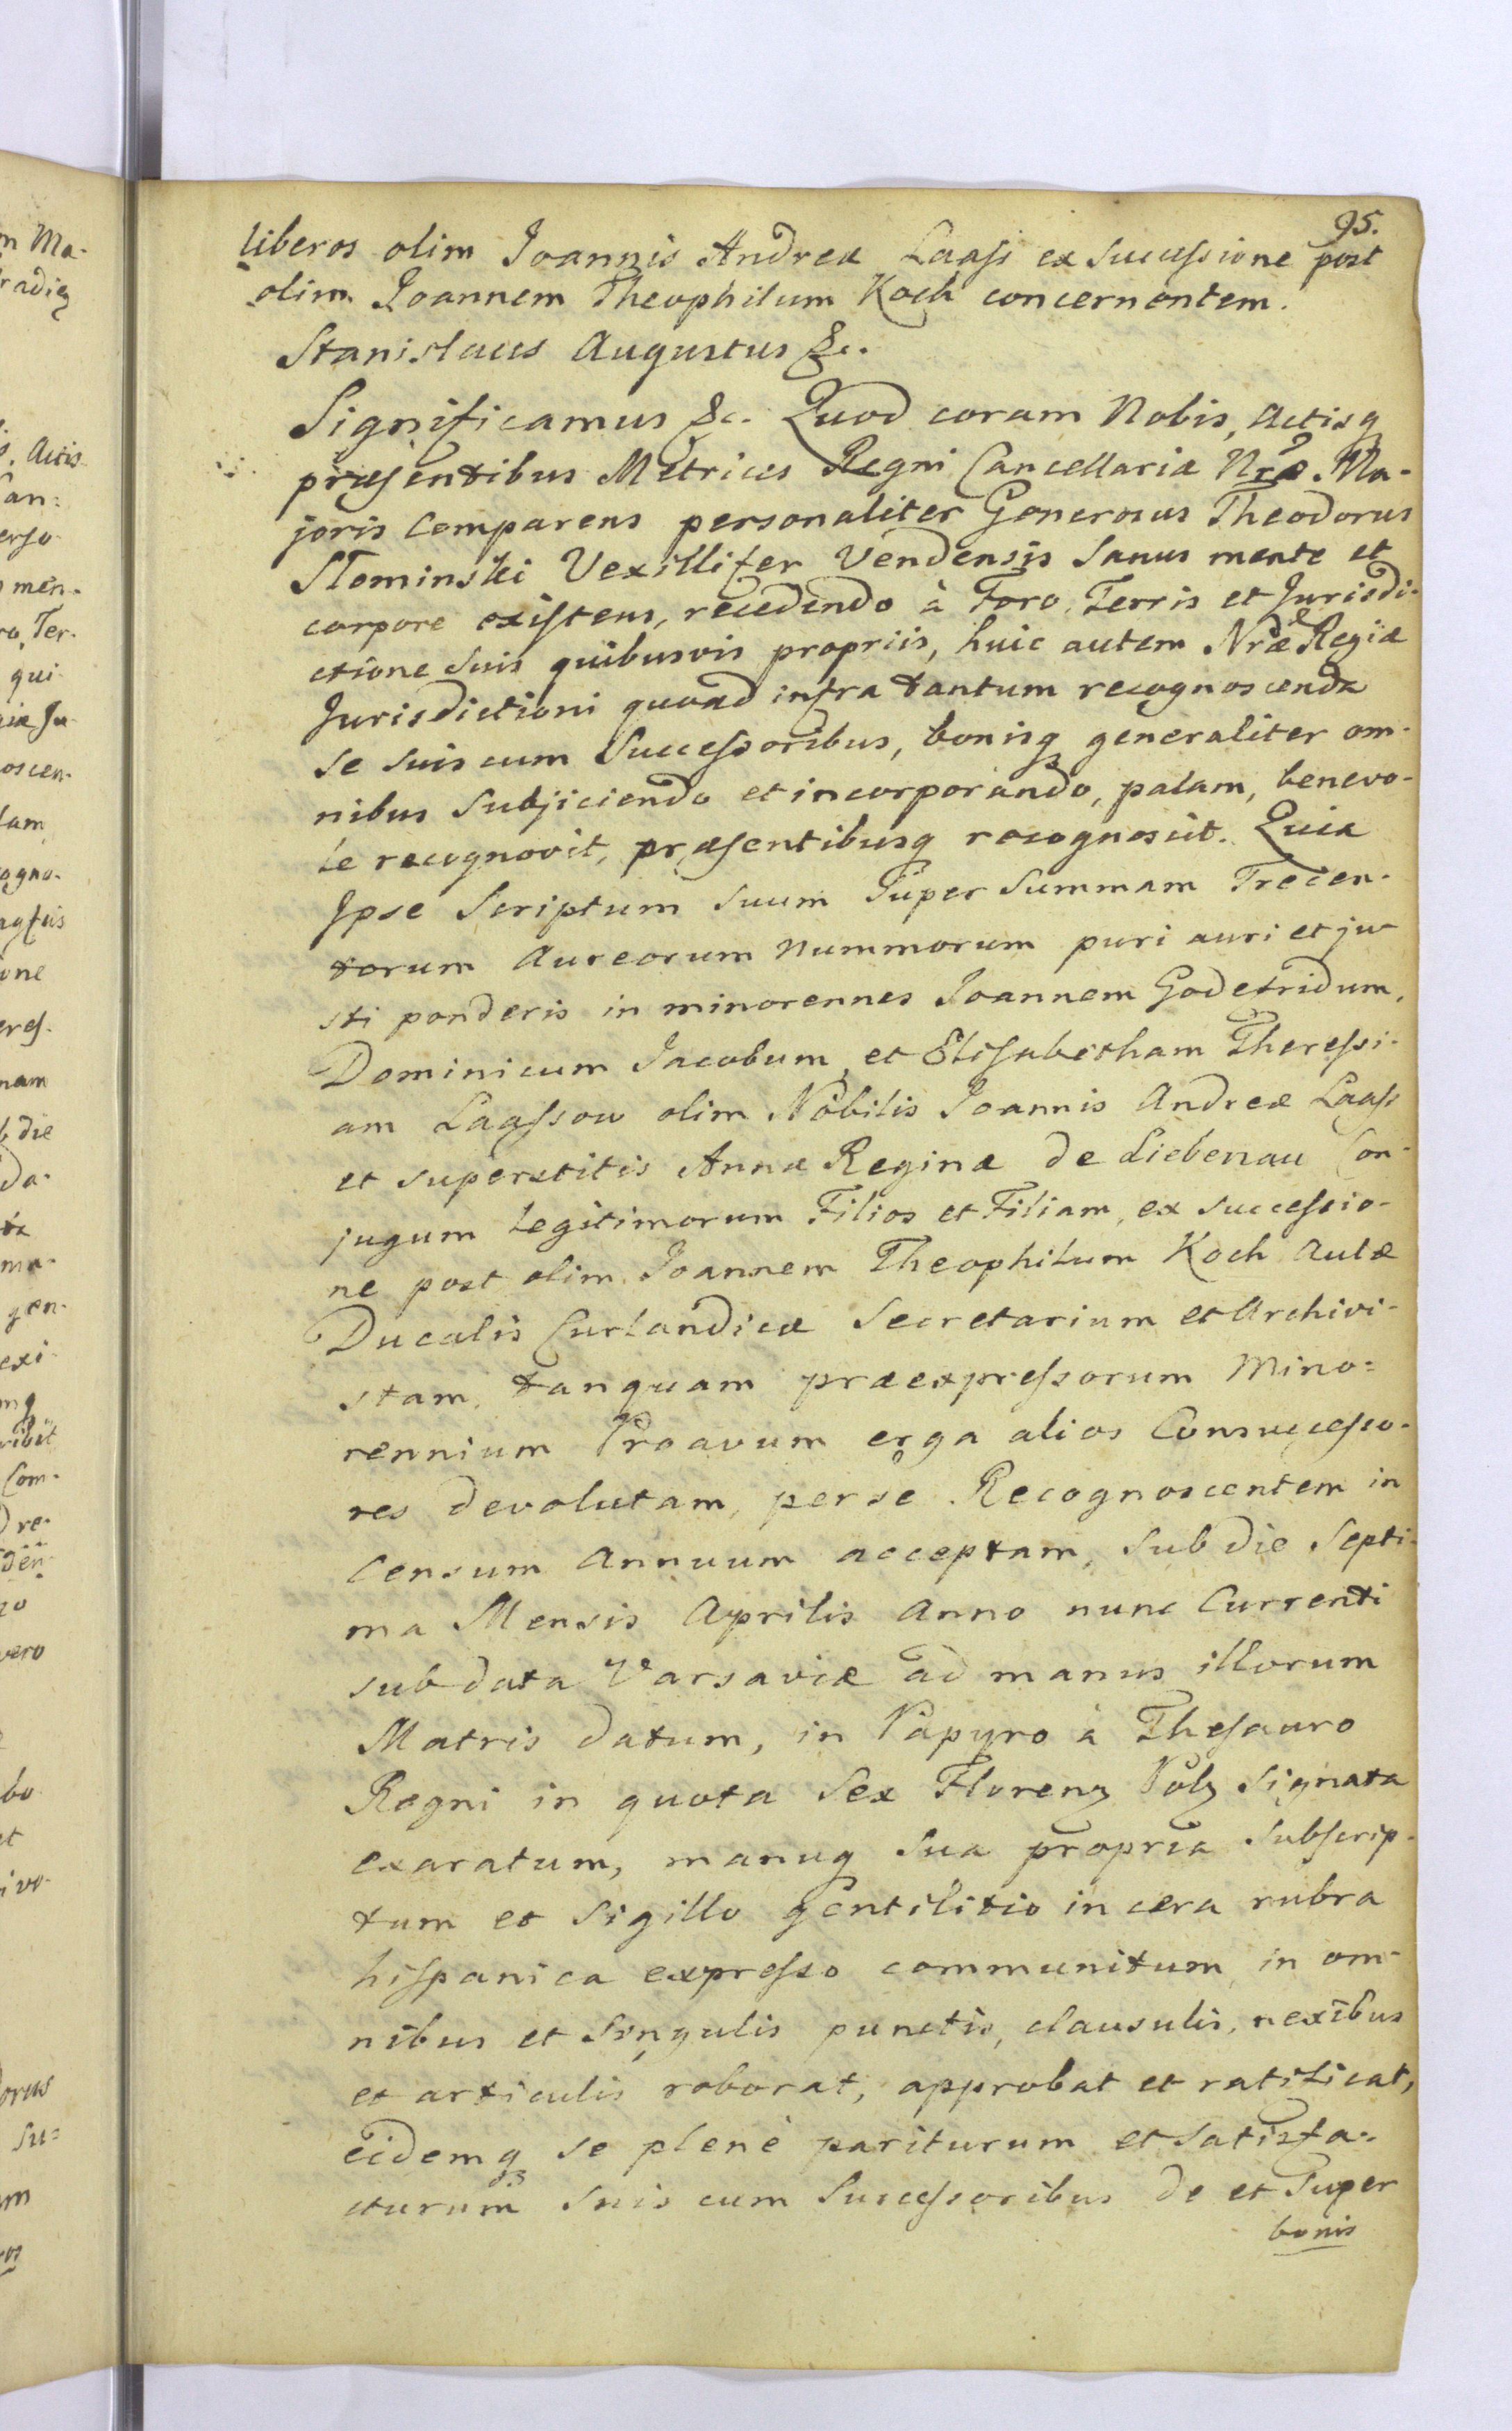 95.
liberos olim Joannis Andreæ Laass ex Successione post
olim Joannem Theophilum Koch concernentem.
Stanislaus Augustus &c.
Significamus &c. Quod coram Nobis, Actisq
præsentibus Metrices Regni Cancellariæ Nræ Ma-
joris Comparens personaliter Generosus Theodorus
Słominski Vexillifer Vendensis Sanus mente et
corpore existens, recedendo à Foro, Terris et Jurisdi-
ctione suis quibusvis propriis, huic autem Nræ Regiæ
Jurisdictioni quoad infra tantum recognoscenda
se suis cum Successoribus, bonisq generaliter om-
nibus Subjiciendo et incorporando, palam, benevo-
le recognovit, præsentibusq recognoscit. Quia
Ipse Scriptum suum Super Summam Trecen-
torum Aureorum Nummorum puri auri et ju-
sti ponderis in minorennes Joannem Godefridum,
Dominicum Jacobum, et Elisabetham Theressi-
am Laassow olim Nobilis Joannis Andreæ Laass
et superstitis Annæ Reginæ de Liebenau Con-
jugum Legitimorum Filios et Filiam, ex successio-
ne post olim Joannem Theophilum Koch Aulæ
Ducalis Curlandicæ Secretarium et Archivi-
stam, tanquam præexpressorum Mino=
rennium Proavum erga alios Consuccesso-
res devolutam, per se Recognoscentem in
Censum Annuum acceptam, sub die Septi-
ma Mensis Aprilis Anno nunc Currenti
sub data Varsaviæ ad manus illorum
Matris datum, in Papyro à Thesauro
Regni in quota Sex Florenz Polz Signata
exaratum, manuq sua propria Subscrip-
tum et Sigillo gentilitio in cera rubra
hispanica expresso communitum, in om-
nibus et Singulis punctis, clausulis, nexibus
et articulis roborat, approbat et ratificat,
eidemq se plenè pariturum et satisfa-
cturum Suis cum Successoribus de et Super
bonis